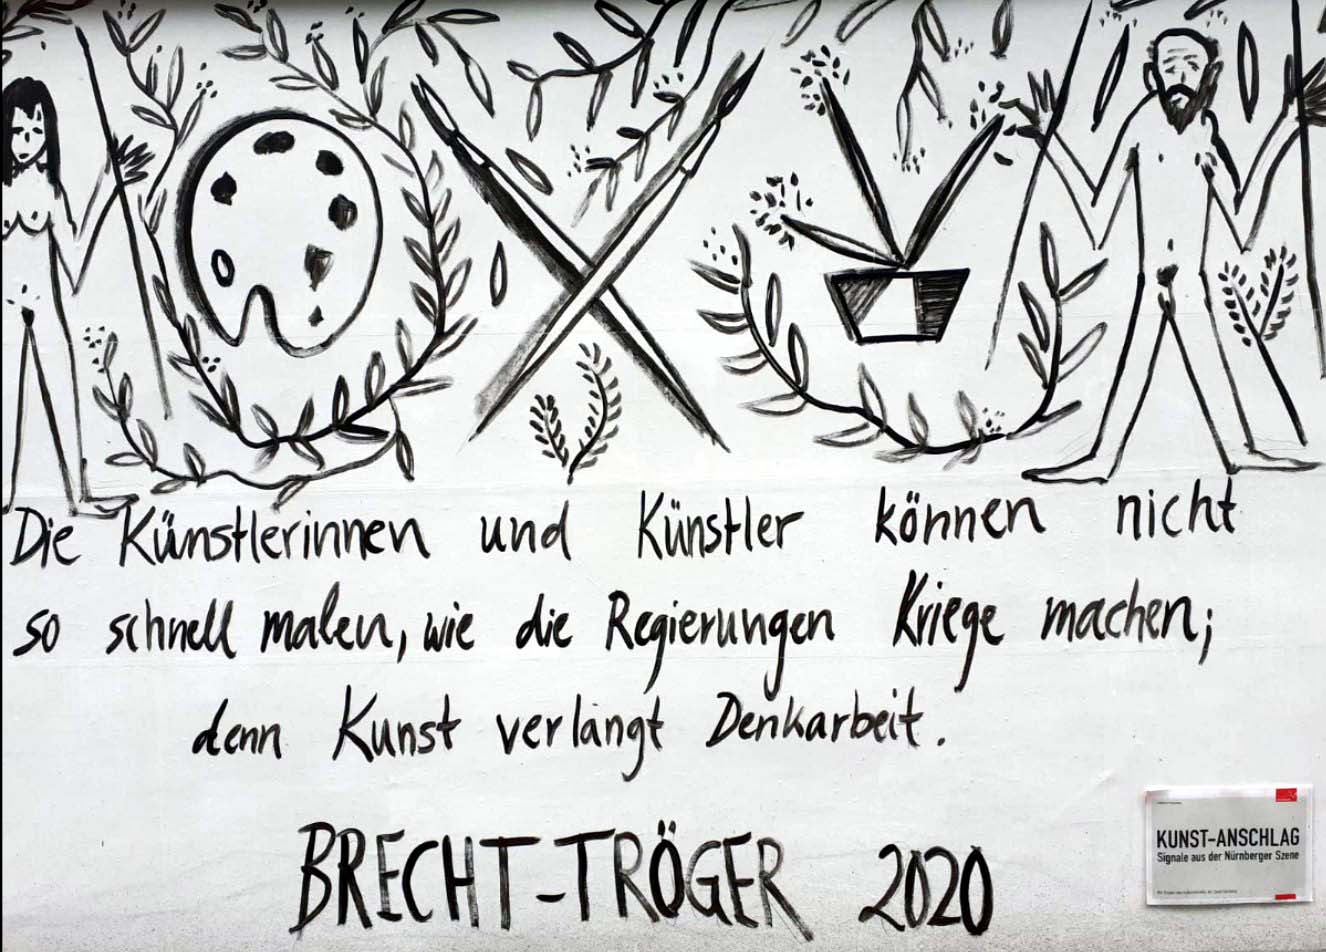 Die Künstlerinnen und Künstler können nicht
so schnell malen, wie die Regierungen Kriege machen;
denn Kunst verlangt Denkarbeit.
BRECHT-TRÖGER 2020
KUNST-ANSCHLAG
Signale aus der Nürnberger Szene